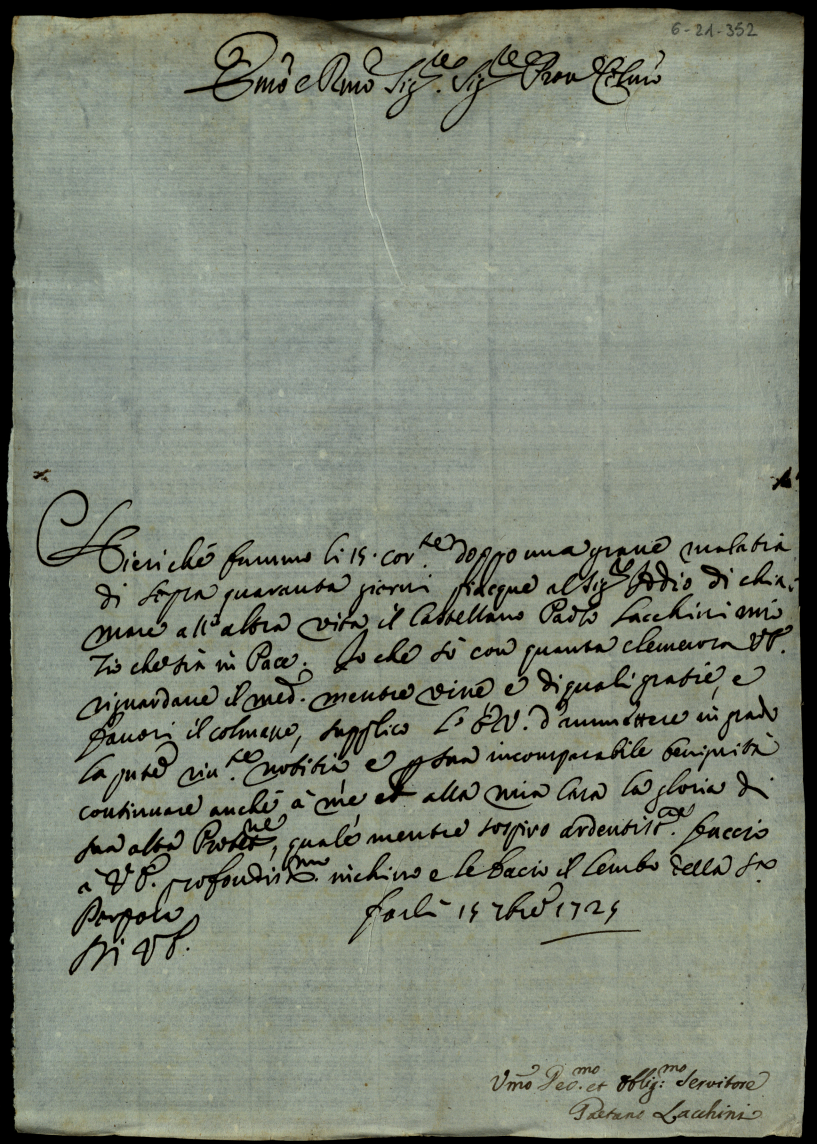 6-21-352
Emõ e Rmõ Sig.re Sig.re Pron Colmõ
Hieri che fummo li 15. cor.te doppo una grave malatia
di sopra quaranta giorni piacque al Sig.re Iddio di chia-
mare all'altra vita il Castellano Paolo Lacchini mio
Zio che sia in Pace. Io che sò con quanta clemenza VE.
riguardave il med.o mentre vive e di quali gratie, e
favori il colmasse, supplico l'E.V. d'ammettere in grado
la pnte riv.te notitia e p sua incomparabile benignità
continuare anche à me et alla mia Casa la gloria di
sua alta Prote.ne, quale mentre sospiro ardentiss.te faccio
à VE. profondiss.mo inchino e le bacio il lembo della Sa.
Porpora
Di VE.
Forlì 15 7bre 1725
Vmõ Deo.mo et oblig:mo Servitore
Gaetano Lacchini